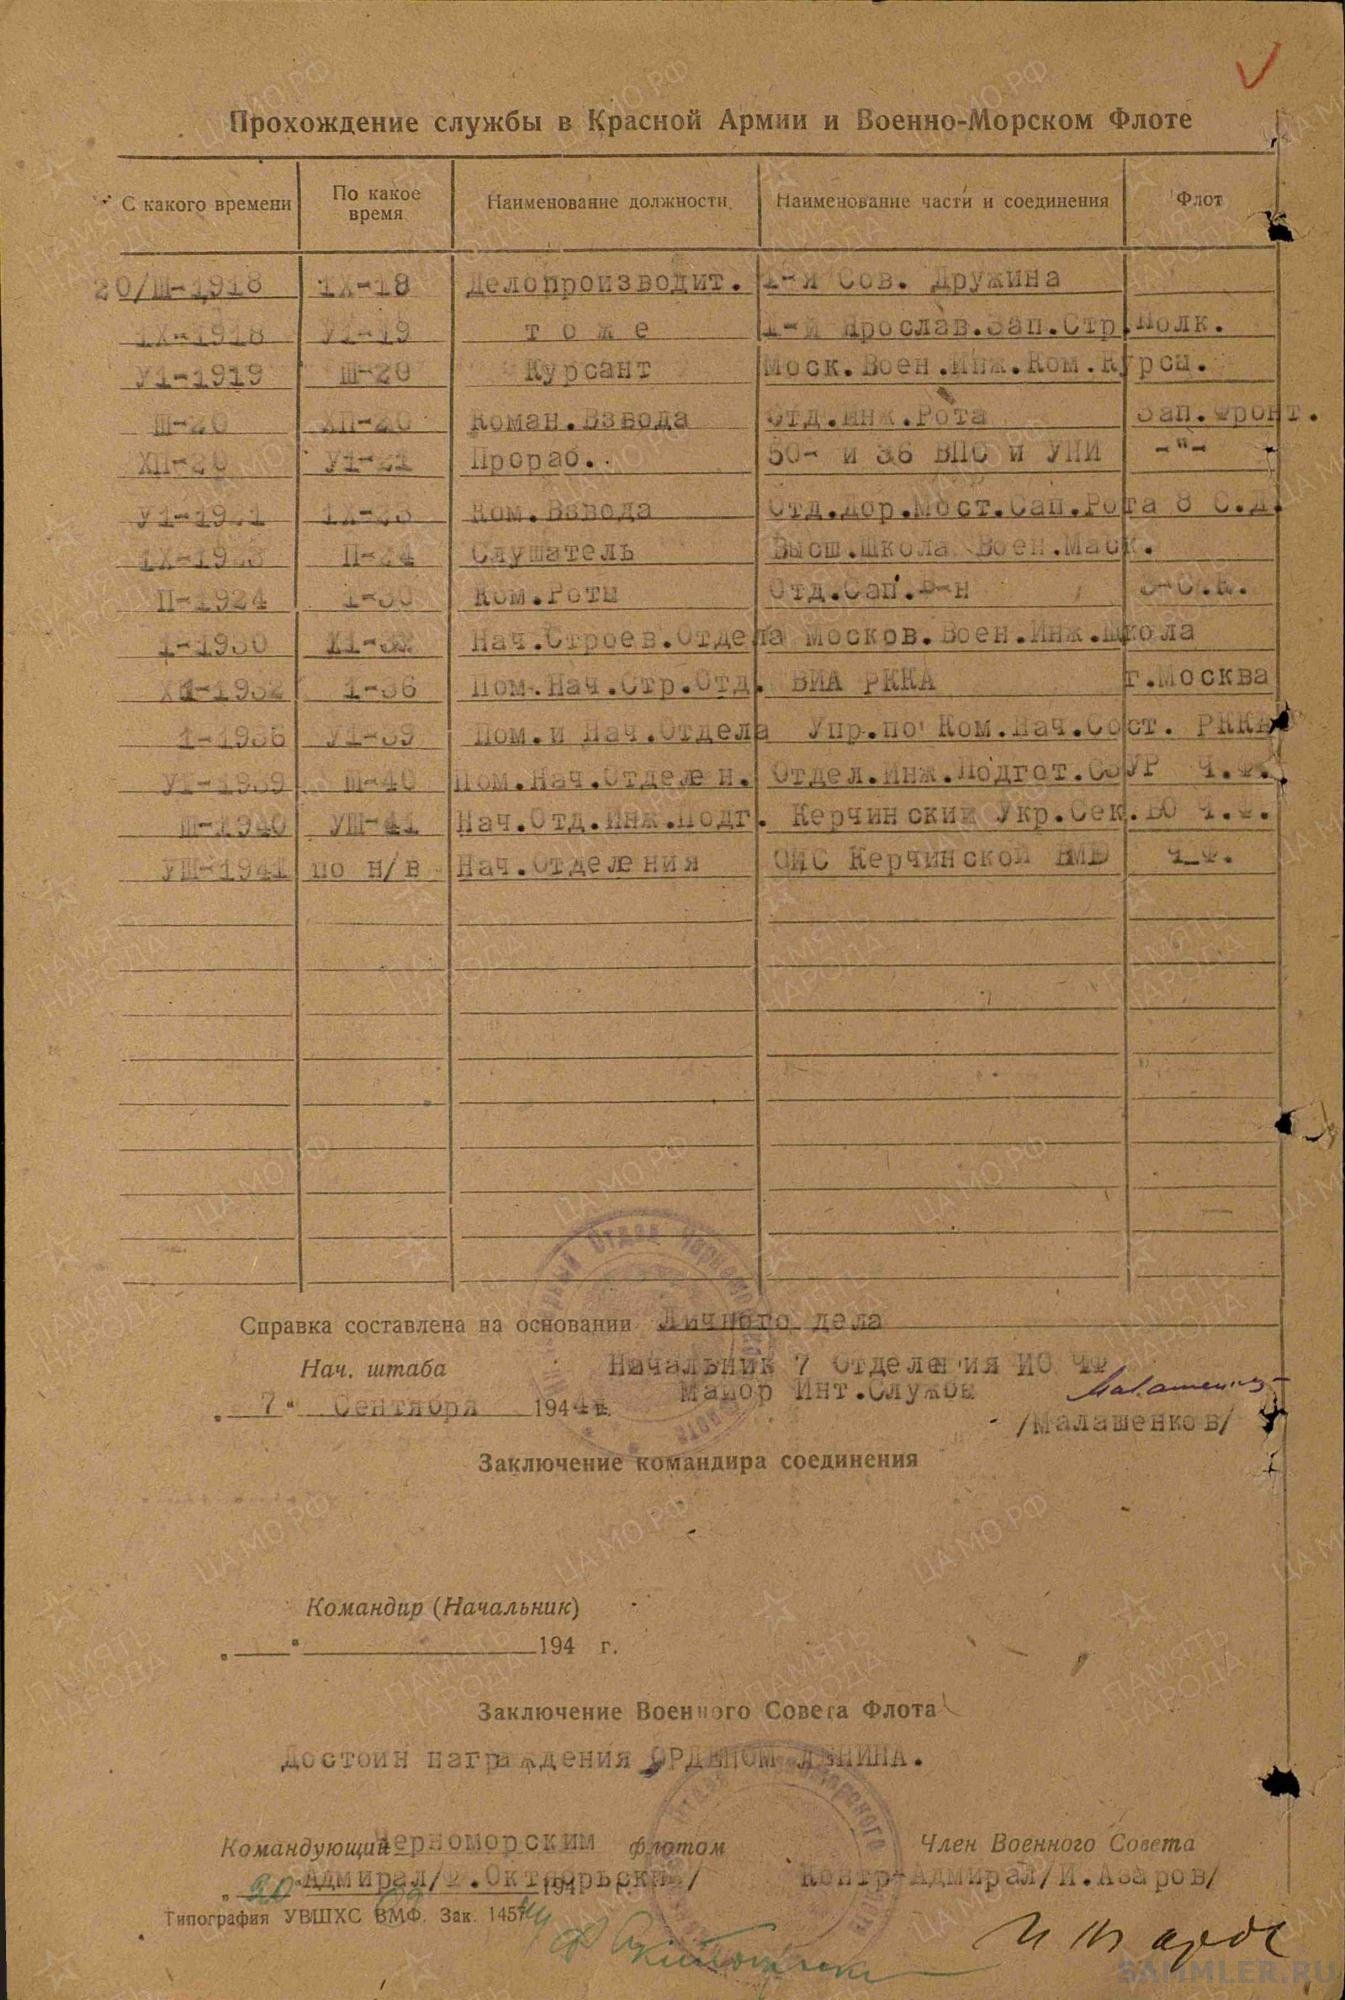 Прохождение службы в Красной Армии и Военно-Морском Флоте
С какого времени По какое время Наименование должности Наименование части и соединения Флот
20/Ш-1918 1Х-18 Делопроизводит. 1-я Сов. Дружина
1Х-1918 У1-19 т о ж е 1-й Ярослав.Зап.Стр.Полк.
У1-1919 Ш-20 Курсант Моск.Воен.Инж.Ком.Курсы.
Ш-20 ХП-20 Коман.Взвода Отд.Инж.Рота Зап.Фронт.
ХП-20 У1-21 Прораб. 50- и 36 ВПС и УНИ -"-
У1-1921 1Х-23 Ком.Взвода Отд.Дор.Мост.Сап.Рота 8 С.Д.
1Х-1923 П-24 Слушатель Высш.Школа Воен.Маск.
П-1924 1-30 Ком.Роты Отд.Сап.Б-н
1-1930 Х1-32 Нач.Строев.Отдела Москов.Воен.Инж.Школа
1932 1-36 Пом.Нач.Стр.Отд. ВИА РККА г.Москва
1-1936 У1-39 Пом.и Нач.Отдела Упр.по Ком.Нач.Сост. РККА
У1-1939 Ш-40 Пом.Нач.Отделен. Отдел.Инж.Подгот. Ч.Ф.
Ш-1940 УШ-41 Нач.Отд.Инж.Подг. Керчинский Укр.Сек.БО Ч.Ф.
УШ-1941 по н/в Нач.Отделения ОИС Керчинской ВМБ Ч.Ф.
Справка составлена на основании Личного дела
Нач. штаба Начальник 7 Отделения ИО ЧФ
Майор Инт.Службы
„7" Сентября 1944 г.
/Малашенков/
Заключение командира соединения
Командир (Начальник)
„ " 194 г.
Заключение Военного Совета Флота
Достоин награждения ОРДЕНОМ ЛЕНИНА.
Командующий Черноморским флотом Член Военного Совета
Адмирал/Ф.Октябрьский/ Контр-Адмирал/И.Азаров/
„20" 194 г.
Типография УВШХС ВМФ. Зак. 1457
ПАМЯТЬ НАРОДА
ЦА МО РФ
SAMMLER.RU